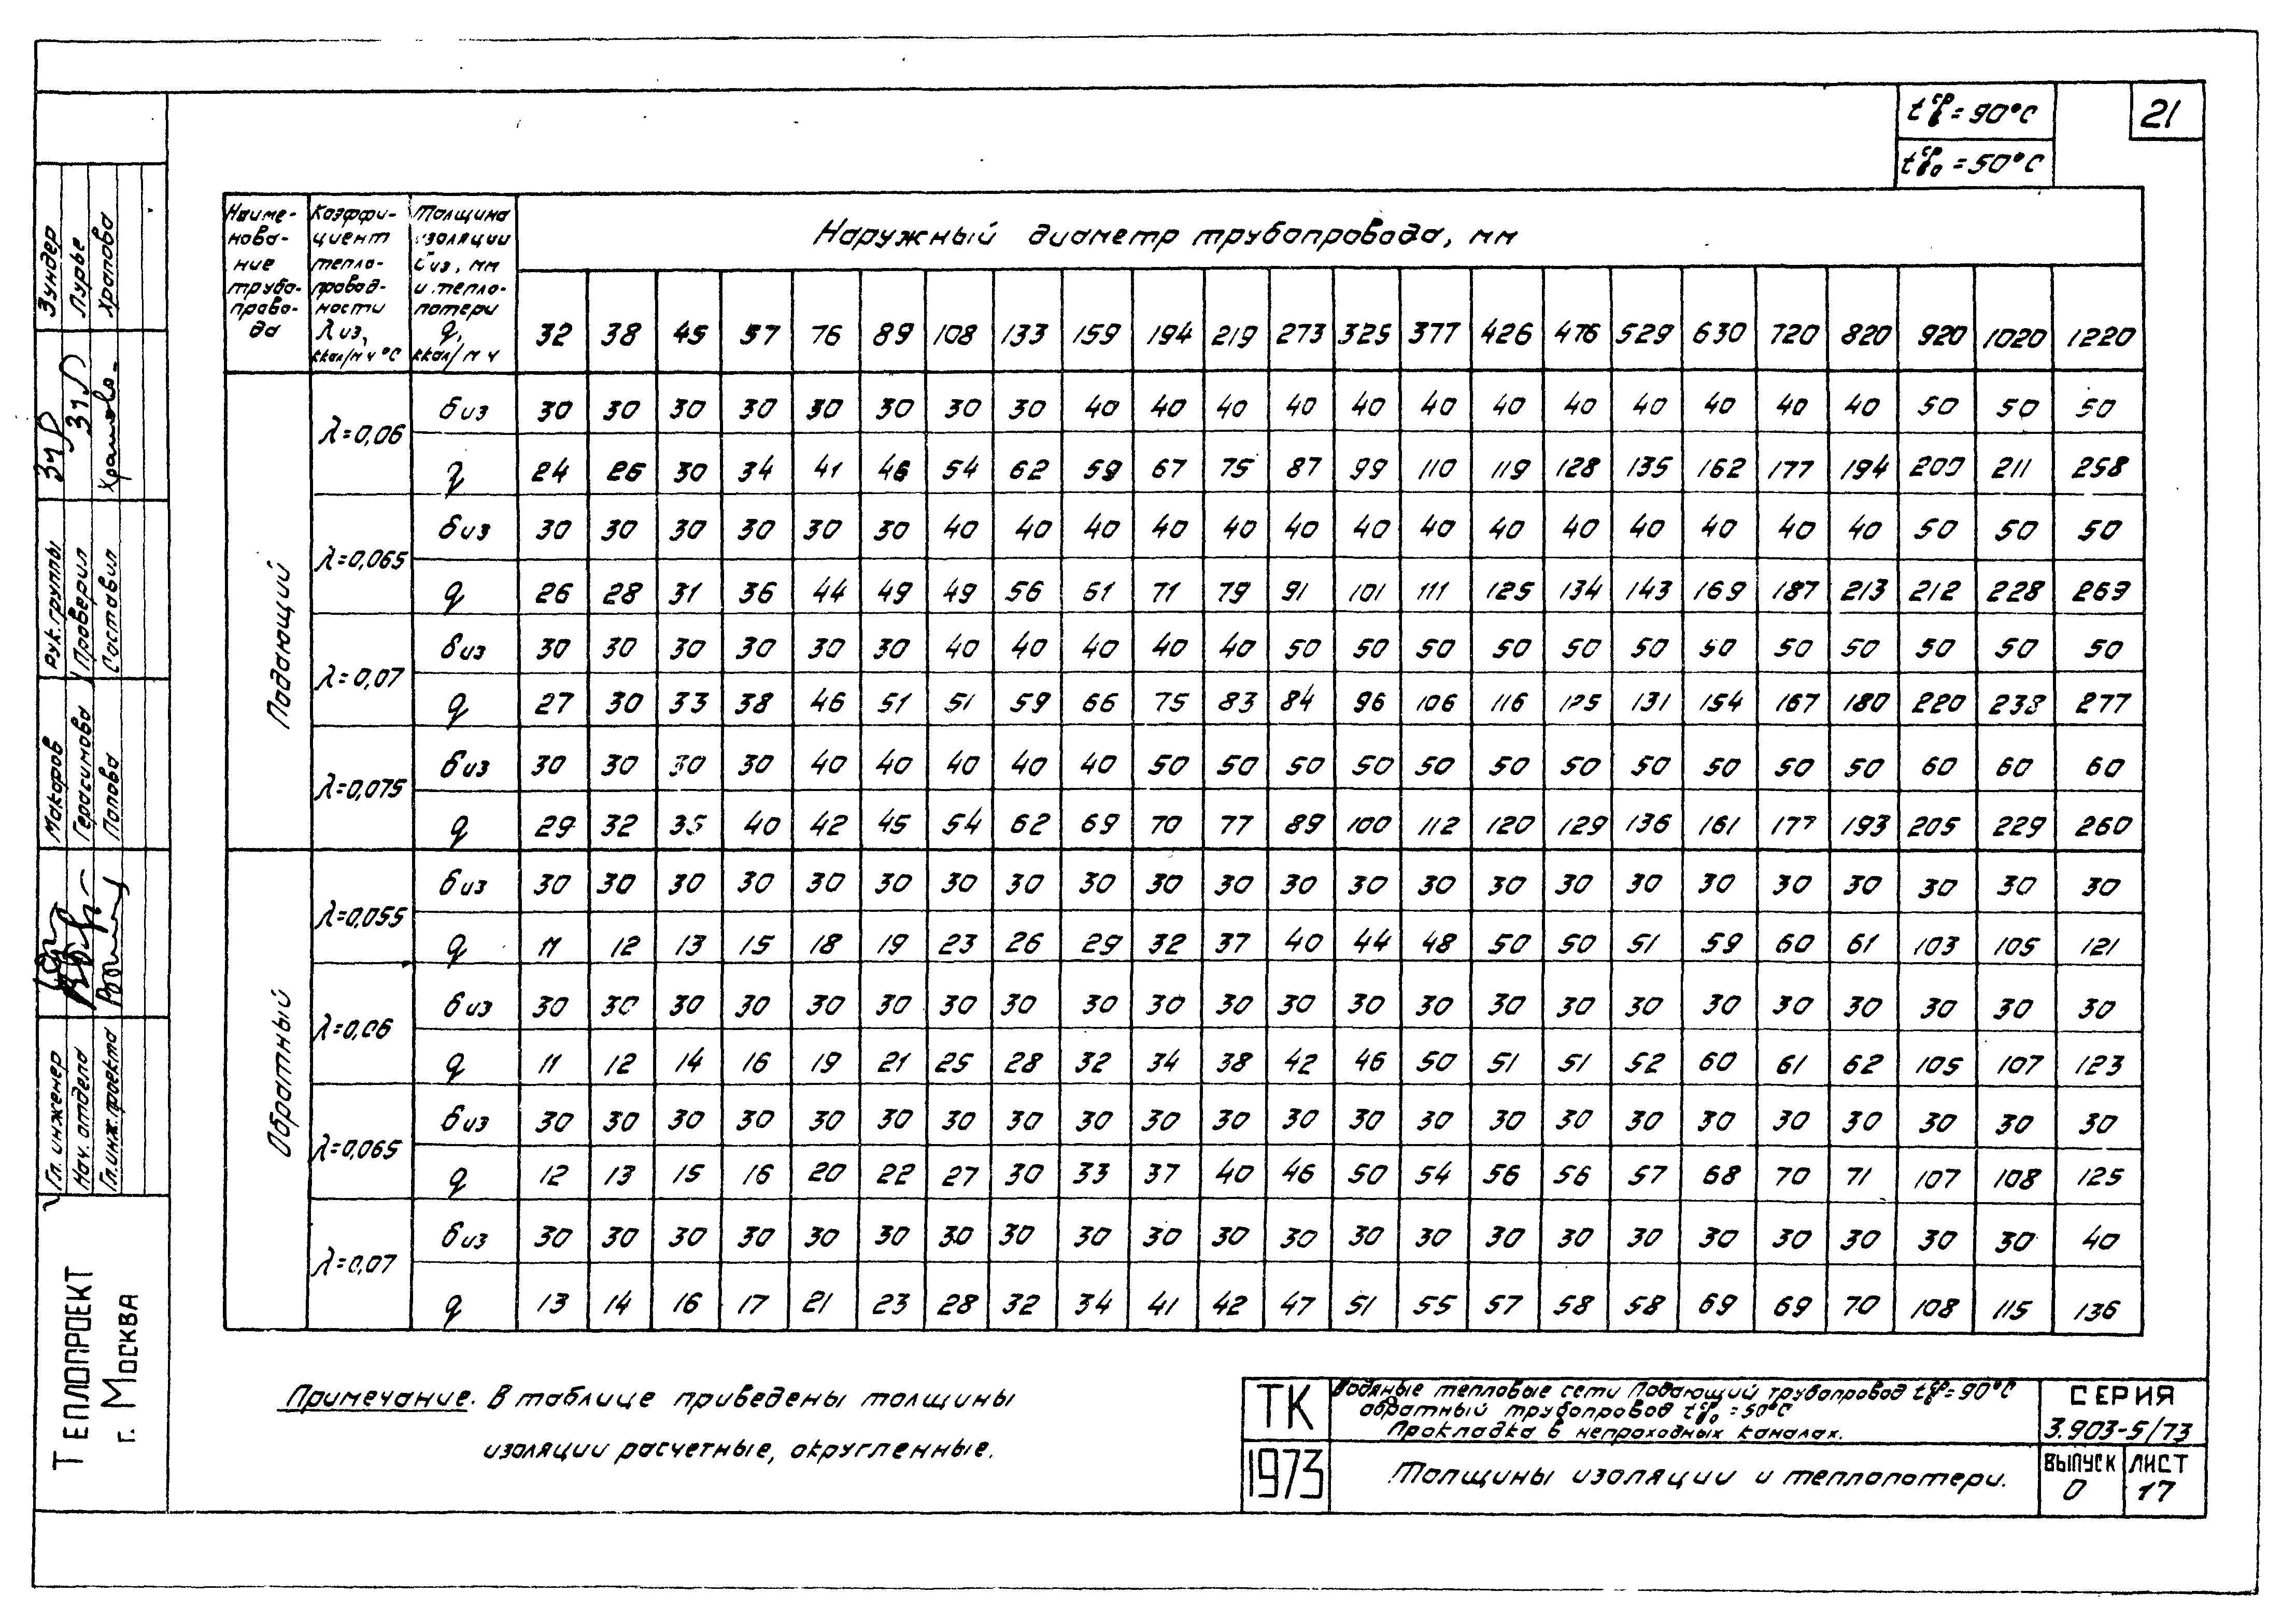 t ср в = 90°С
21
t ср во = 50°С
Наиме-нова-ние трубо-прово-да
Коэффи-циент тепло-провод-ности λ из, ккал/м ч °С
Толщина изоляции δ из, мм и тепло-потери q, ккал/м ч
Наружный диаметр трубопровода, мм
32 38 45 57 76 89 108 133 159 194 219 273 325 377 426 476 529 630 720 820 920 1020 1220
Подающий
λ=0,06
δ из 30 30 30 30 30 30 30 30 40 40 40 40 40 40 40 40 40 40 40 40 50 50 50
q 24 26 30 34 41 46 54 62 59 67 75 87 99 110 119 128 135 162 177 194 200 211 258
λ=0,065
δ из 30 30 30 30 30 30 40 40 40 40 40 40 40 40 40 40 40 40 40 40 50 50 50
q 26 28 31 36 44 49 49 56 61 71 79 91 101 111 125 134 143 169 187 213 212 228 269
λ=0,07
δ из 30 30 30 30 30 30 40 40 40 40 40 50 50 50 50 50 50 50 50 50 50 50 50
q 27 30 33 38 46 51 51 59 66 75 83 84 96 106 116 125 131 154 167 180 220 238 277
λ=0,075
δ из 30 30 30 30 40 40 40 40 40 50 50 50 50 50 50 50 50 50 50 50 60 60 60
q 29 32 35 40 42 45 54 62 69 70 77 89 100 112 120 129 136 161 177 193 205 229 260
Обратный
λ=0,055
δ из 30 30 30 30 30 30 30 30 30 30 30 30 30 30 30 30 30 30 30 30 30 30 30
q 11 12 13 15 18 19 23 26 29 32 37 40 44 48 50 50 51 59 60 61 103 105 121
λ=0,06
δ из 30 30 30 30 30 30 30 30 30 30 30 30 30 30 30 30 30 30 30 30 30 30 30
q 11 12 14 16 19 21 25 28 32 34 38 42 46 50 51 51 52 60 61 62 105 107 123
λ=0,065
δ из 30 30 30 30 30 30 30 30 30 30 30 30 30 30 30 30 30 30 30 30 30 30 30
q 12 13 15 16 20 22 27 30 33 37 40 46 50 54 56 56 57 68 70 71 107 108 125
λ=0,07
δ из 30 30 30 30 30 30 30 30 30 30 30 30 30 30 30 30 30 30 30 30 30 30 40
q 13 14 16 17 21 23 28 32 34 41 42 47 51 55 57 58 58 69 69 70 108 115 136
Примечание. В таблице приведены толщины
изоляции расчетные, округленные.
ТК
1973
Водяные тепловые сети Подающий трубопровод t ср в = 90°С
обратный трубопровод t ср во = 50°С
Прокладка в непроходных каналах.
Толщины изоляции и теплопотери.
СЕРИЯ
3.903-5/73
ВЫПУСК
0
ЛИСТ
17
Зундер
Лурье
Храпова
Рук. группы
Проверил
Составил
Макаров
Герасимова
Попова
Гл. инженер
Нач. отдела
Гл.инж.проекта
ТЕПЛОПРОЕКТ
г. МОСКВА